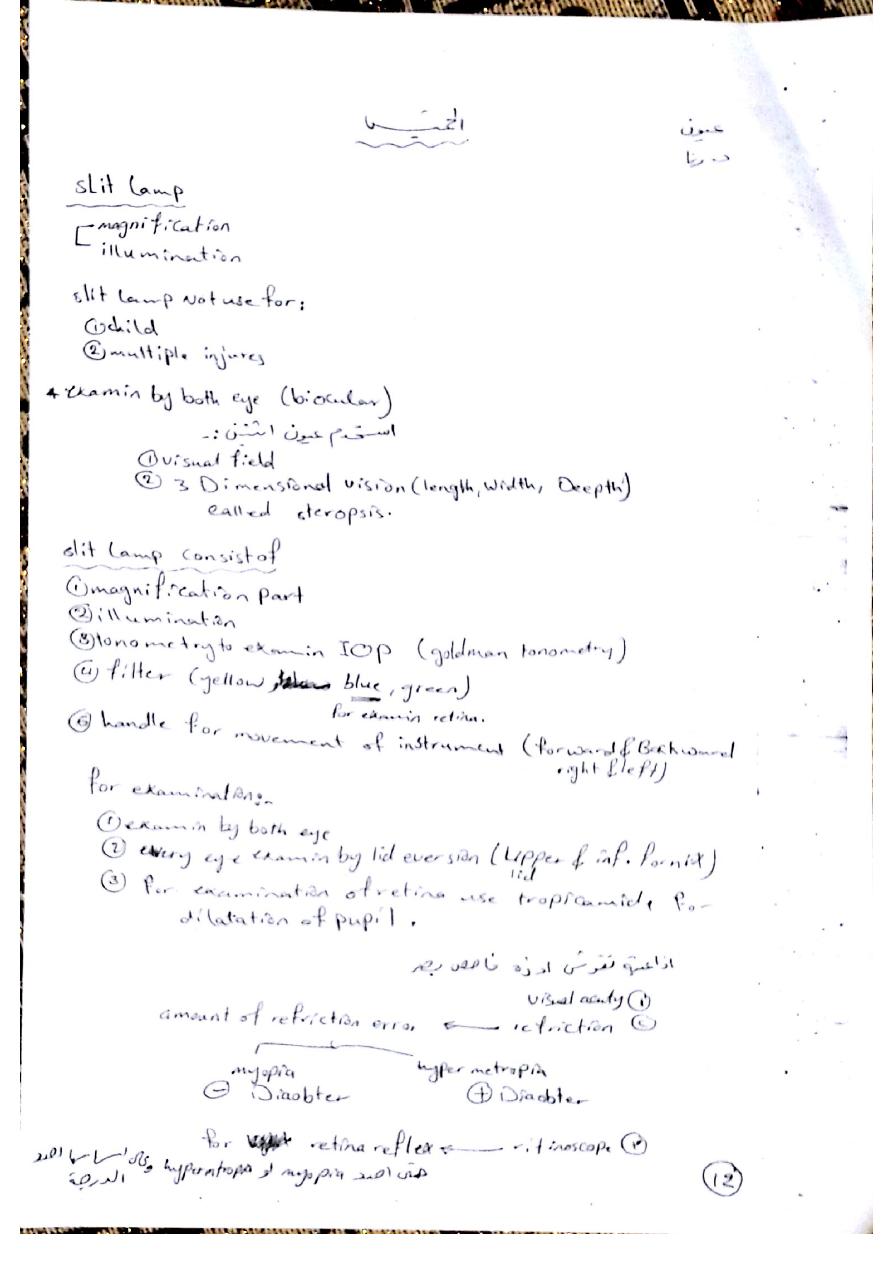 عيون
د. رنا
slit lamp
magnification
illumination
slit lamp Not use for:
① child
② multiple injures
examin by both eye (biocular)
استخدم عيون اثنين :-
① visual field
② 3 Dimensional vision (length, width, Deepth)
called steropsis.
slit lamp consist of
① magnification part
② illumination
③ tonometry to examin IOP (goldman tonometry)
④ filter (yellow, blue, green)
for examin retina.
handle for movement of instrument (forward & Backward
right & left)
for examination:-
① examin by both eye
② every eye examin by lid eversion (Upper & inf. fornix)
lid
③ for examination of retina use tropicamide for
dilatation of pupil.
visual acuty ①
amount of refriction error ← refriction ②
myopia hyper metropia
⊖ Diaobter ⊕ Diaobter
for retina reflex ← ritinoscope ③
حتى احدد myopia او hypermtropia
الدرجة
12